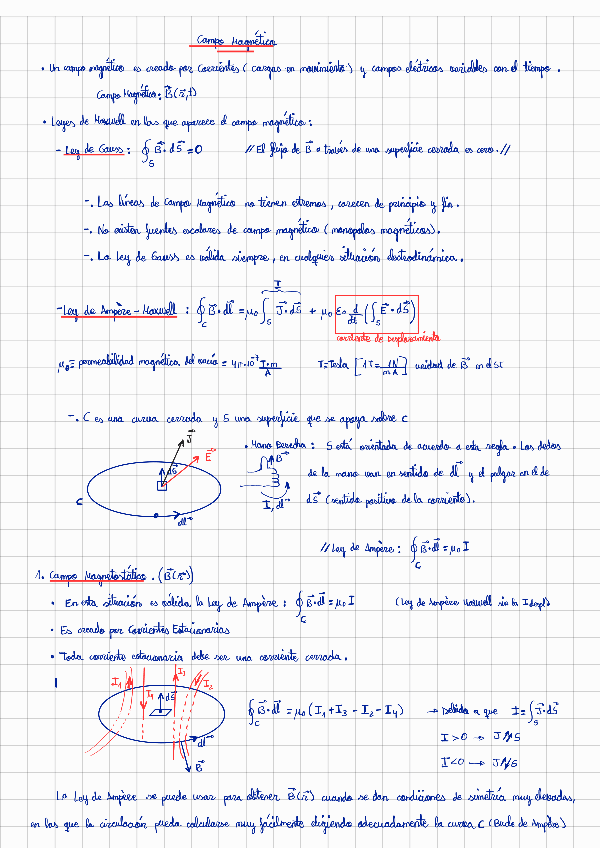 Campo Magnético
• Un campo magnético es creado por Corrientes ( cargas en movimiento) y campos eléctricos variables con el tiempo .
Campo Magnético: B⃗(r⃗,t)
• Leyes de Maxwell en las que aparece el campo magnético :
- Ley de Gauss : ∮_S B⃗ · dS⃗ = 0 // El flujo de B⃗ a través de una superficie cerrada es cero. //
-. Las líneas de Campo Magnético no tienen extremos , carecen de principio y fin .
-. No existen fuentes escalares de campo magnético ( monopolos magnéticos).
-. La Ley de Gauss es válida siempre , en cualquier situación electrodinámica .
I
- Ley de Ampère - Maxwell : ∮_C B⃗ · dl⃗ = μ₀ ∫_S J⃗ · dS⃗ + μ₀ ε₀ d/dt ( ∫_S E⃗ · dS⃗ )
corriente de Desplazamiento
μ₀ = permeabilidad magnética del vacío = 4π·10⁻⁷ T·m/A T=Tesla [ 1T = 1N/mA ] unidad de B⃗ en el SI
-. C es una curva cerrada y S una superficie que se apoya sobre C
J⃗
E⃗
dS⃗
C
dl⃗
• Mano Derecha : S está orientada de acuerdo a esta regla • Los dedos
B⃗
de la mano van en sentido de dl⃗ y el pulgar en el de
I, dl⃗
dS⃗ (sentido positivo de la corriente) .
// Ley de Ampère : ∮_C B⃗·dl⃗ = μ₀ I
1. Campo Magnetostático . (B⃗(r⃗))
• En esta situación es válida la Ley de Ampère : ∮_C B⃗·dl⃗ = μ₀ I (Ley de Ampère Maxwell sin la Idespl)
• Es creado por Corrientes Estacionarias
• Toda corriente estacionaria debe ser una corriente cerrada .
I₁ I₄ dS⃗ I₃ I₂
dl⃗
B⃗
∮_C B⃗·dl⃗ = μ₀ ( I₁ + I₃ - I₂ - I₄ ) → Debido a que I = ∫_S J⃗·dS⃗
I > 0 →
I < 0 →
La Ley de Ampère se puede usar para obtener B⃗(r⃗) cuando se dan condiciones de simetría muy elevadas,
en las que la circulación pueda calcularse muy fácilmente eligiendo adecuadamente la curva C (Bucle de Ampère)